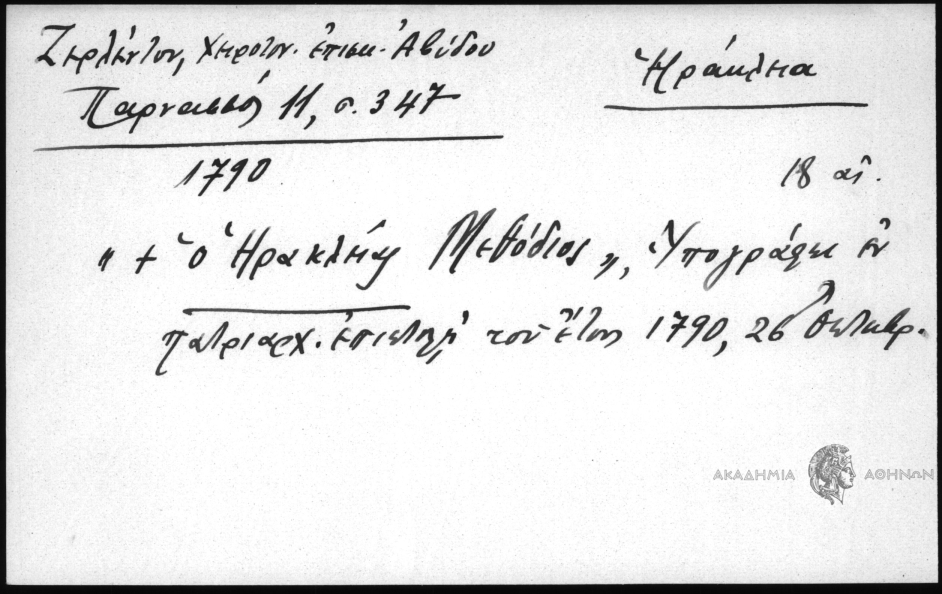 Ζερλέντου, Χειροτον. ἐπισκ. Ἀβύδου
Παρνασσός 11, σ. 347
Ἡράκλεια
1790
18 αἰ.
" + ὁ Ἡρακλείας Μεθόδιος ", Ὑπογράφει ἐν
πατριαρχ. ἐπιστολῇ τοῦ ἔτους 1790, 26 Ὀκτωβρ.
ΑΚΑΔΗΜΙΑ ΑΘΗΝΩΝ